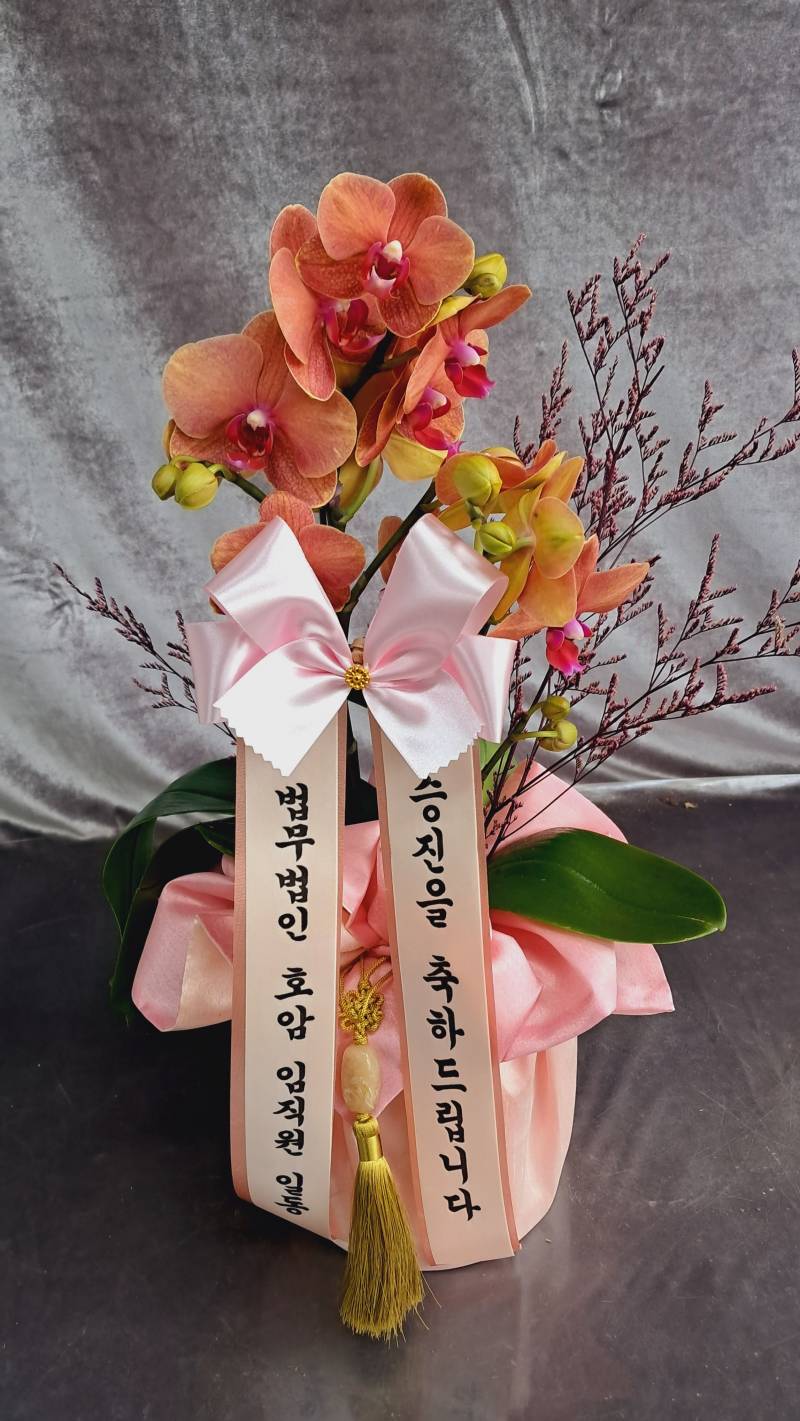 법무법인 호암 임직원 일동
승진을 축하드립니다